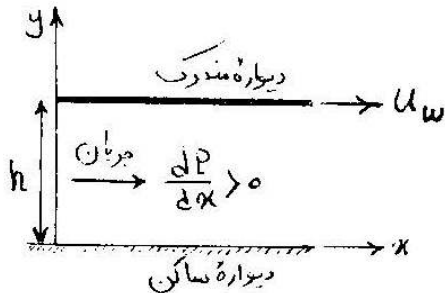 y
دیوارهٔ متحرک
U_w
h
جریان
dP/dx > 0
x
دیوارهٔ ساکن